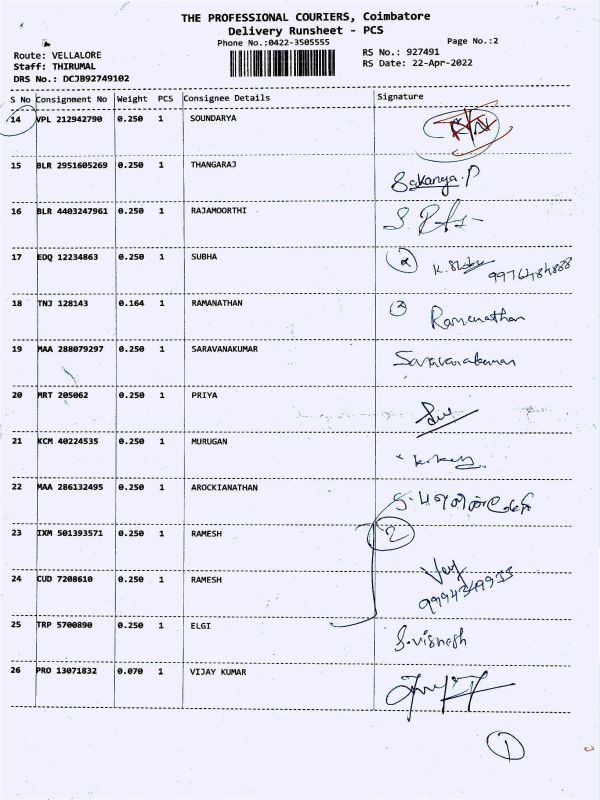 THE PROFESSIONAL COURIERS, Coimbatore
Delivery Runsheet - PCS
Phone No.:0422-3505555
Page No.:2
Route: VELLALORE
RS No.: 927491
Staff: THIRUMAL
RS Date: 22-Apr-2022
DRS No.: DCJB92749102
S No Consignment No Weight PCS Consignee Details Signature
14 VPL 212942790 0.250 1 SOUNDARYA
15 BLR 2951605269 0.250 1 THANGARAJ Sakanya.P
16 BLR 4403247961 0.250 1 RAJAMOORTHI
17 EDQ 12234863 0.250 1 SUBHA
18 TNJ 128143 0.164 1 RAMANATHAN Ramanathan
19 MAA 288079297 0.250 1 SARAVANAKUMAR Saravanakumar
20 MRT 205062 0.250 1 PRIYA
21 KCM 40224535 0.250 1 MURUGAN
22 MAA 286132495 0.250 1 AROCKIANATHAN
23 IXM 501393571 0.250 1 RAMESH 2
24 CUD 7208610 0.250 1 RAMESH
25 TRP 5700890 0.250 1 ELGI S.vishesh
26 PRO 13071832 0.070 1 VIJAY KUMAR
1